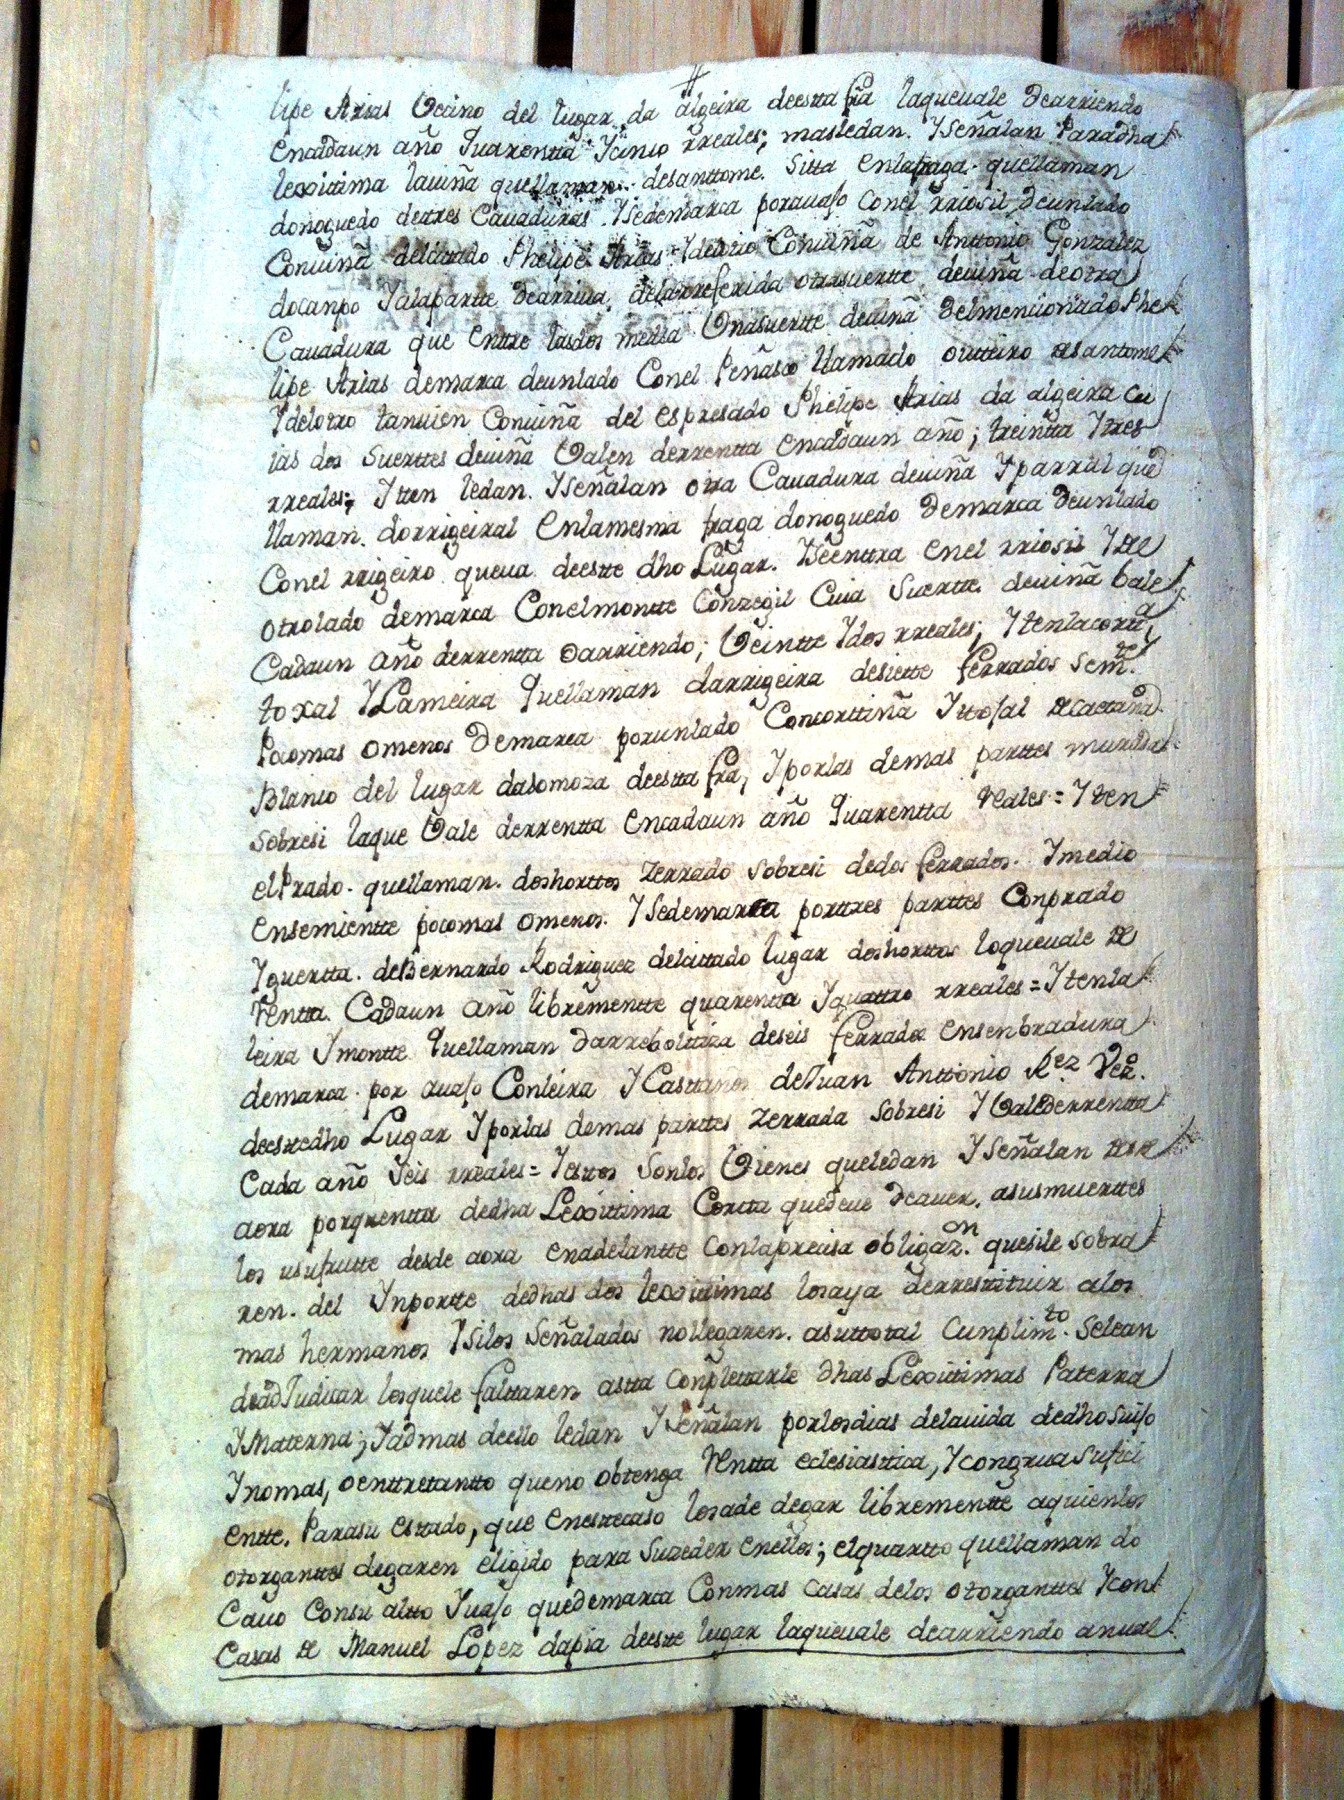 lipe Arias Vecino del lugar da algeira deestta fra laqueuale dearriendo
encadaun año quarentta Ycinco rreales; masledan. Yseñalan Paradha
lexittima lauiña quellaman desanttome. Sitta enlafraga quellaman
donoguedo detres Cauaduras. Ysedemarca porauajo conel rriosil deunlado
Conuiña delcitado Phelipe Arias Ydelrio Conuiña de Anttonio Gonzalez
docampo Yalapartte dearriua delarreferida otrasuertte deuiña deotra
Cauadura que enttre lasdos media Unasuertte deuiña delmencionado Phe
lipe Arias demarca deunlado Conel Peñasco llamado outteiro desanttome
Ydelotro tanuien Conuiña del espresado Phelipe Arias da algeira cu
ias dos Suerttes deuiña Valen derrentta encadaun año; treintta Ytres
rreales; Ytten ledan. Yseñalan otra Cauadura deuiña Yparral que
llaman. dorrigeiral enlamesma fraga donoguedo demarca deunlado
Conel rrigeiro queua deestte dho Lugar. Yseenttra enel rriosil Ydel
otrolado demarca Conelmontte Conzegil Cuia Suertte. deuiña bale
Cadaun año derrentta oarriendo; Veintte Ydos rreales; Ytenlacortta
toxal YLameira quellaman darrigeira desiette ferrados Sem.te
Pocomas omenos demarca porunlado Concorttiña Yttojal decaetano
Blanco del lugar dasomoza deestta fra, Yporlas demas parttes murada
sobresi laque Vale derrentta encadaun año quarentta reales = Yten
elPrado. quellaman. doshorttos zerrado sobresi dedos ferrados. Ymedio
ensemientte pocomas omenos. Ysedemarca porttres parttes Conprado
Yguertta. deBernardo Rodriguez delcittado lugar doshorttos loqueuale de
rentta. Cadaun año libremente quarentta Yquattro rreales = Ytenla
leira Ymontte quellaman darrebolttiza deseis ferrados ensenbradura
demarca. por auajo Conleira YCasttanos deJuan Anttonio Rez Veo.
deestedho Lugar Yporlas demas parttes zerrada sobresi YValederrentta
Cada año seis rreales = Yesttos sonlos Vienes queledan Yseñalan desde
aora porqrentta dedha Lexittima Cortta quedeue deauer. asusmuerttes
los usufrutte desde aora enadelantte conlaprecisa obligaz.on quesile sobra
ren. del Ynportte dedhas dos lexittimas losaya derresttituir alos
mas hermanos Ysilos señalados nollegaren. asuttotal Cunplim.to Selean
deadJudicar losquele falttaren astta conplettarle dhas Lexittimas Paterna
YMaterna; Yadmas deello ledan Yseñalan porlosdias delauida dedhosuijo
Ynomas, oenttretantto queno obtenga Rentta eclesiasttica, Ycongrua sufici
entte. Parasu esttado, que enestecaso losade degar libremente aquienlos
otorganttes degaren eligido para suzeder enellos; elquartto quellaman do
Cauo Consu altto Yuajo quedemarca Conmas casas delos otorganttes Ycon
Casas de Manuel Lopez dapia deestte lugar laqueuale dearriendo anual